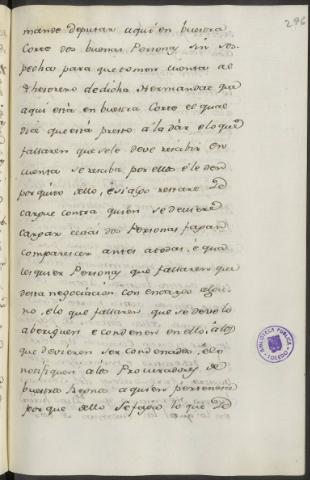 296
mande deputar aqui en buestra
Corte dos buenas Personas sin sos-
pecha para que tomen cuenta al
Thesorero de dicha Hermandat que
aqui està en buestra Corte el qual
dice que està presto à la dàr è lo que
fallaren que se le deve rescibir en
cuenta se resciba por ellos è le den
por quito dello, è si algo restare se
cargue contra quien se deviere
cargar è estas dos Personas fagan
comparescer antes a todas, è qua-
lesquier Personas que fallaren que
desta negociacion con encargo algu-
no, è lo que fallaren que se deve lo
aberiguen è condenen en ello, à los
que devieren ser condenados, è lo
notifiquen à los Procuradores de
buestros Reynos a quien pertenesce
por que dello se faga lo que se
BIBLIOTECA PUBLICA
TOLEDO